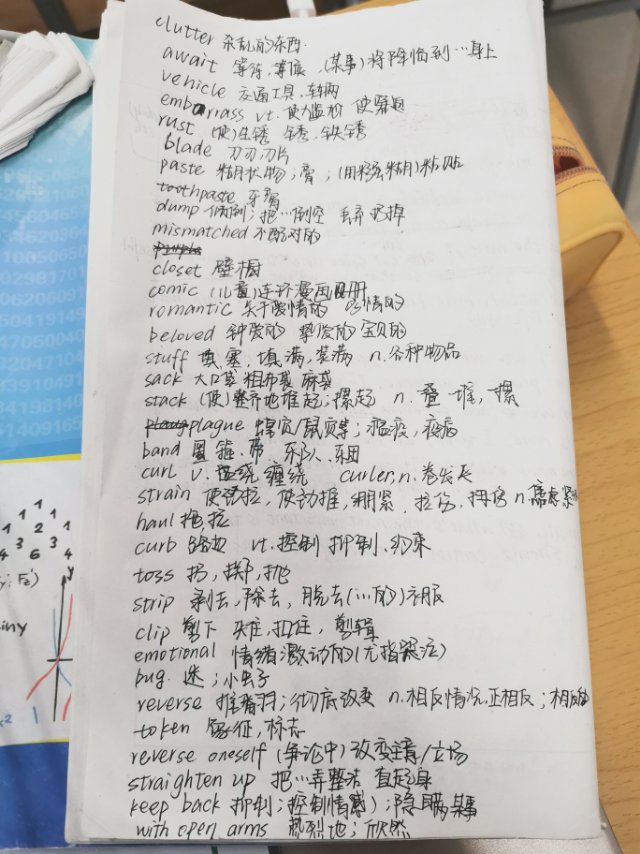 clutter 杂乱的东西
await 等待,等候,(某事)将降临到…身上
vehicle 交通工具,车辆
embarrass vt. 使尴尬 使窘迫
rust (使)生锈 锈,铁锈
blade 刀刃刀片
paste 糊状物;膏;(用糨糊)粘贴
toothpaste 牙膏
dump 倾倒;把…倒空 丢弃 扔掉
mismatched 不配对的
closet 壁橱
comic (儿童)连环漫画册
romantic 关于爱情的 爱情的
beloved 钟爱的 挚爱的 宝贝的
stuff 填塞,填满,装满 n.各种物品
sack 大口袋 粗布袋 麻袋
stack (使)整齐地堆起;摞起 n. 一叠 一堆,一摞
plague 瘟疫,疫病
band 箍 带 乐队、乐团
curl v. 缠绕 curler,n.卷发夹
strain 使劲拉,使劲推,绷紧,拉伤,扭伤 n.焦虑紧
haul 拖,拉
curb 路边 vt.控制 抑制、约束
toss 扔,掷,抛
strip 剥去,除去,脱去(…的)衣服
clip 剪下 夹住,扣住,剪辑
emotional 情绪激动的(尤指哭泣)
bug 迷;小虫子
reverse 推翻;彻底改变 n.相反情况,正相反;相反的
token 象征,标志
reverse oneself (争论中)改变主意/立场
straighten up 把…弄整洁 直起身
keep back 抑制;控制(情感);隐瞒某事
with open arms 热烈地;欣然